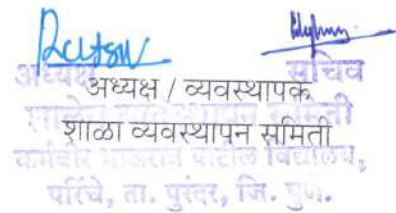 अध्यक्ष सचिव
अध्यक्ष / व्यवस्थापक
शाळा व्यवस्थापन समिती
कर्मवीर भाऊराव पाटील विद्यालय,
परिंचे, ता. पुरंदर, जि. पुणे.